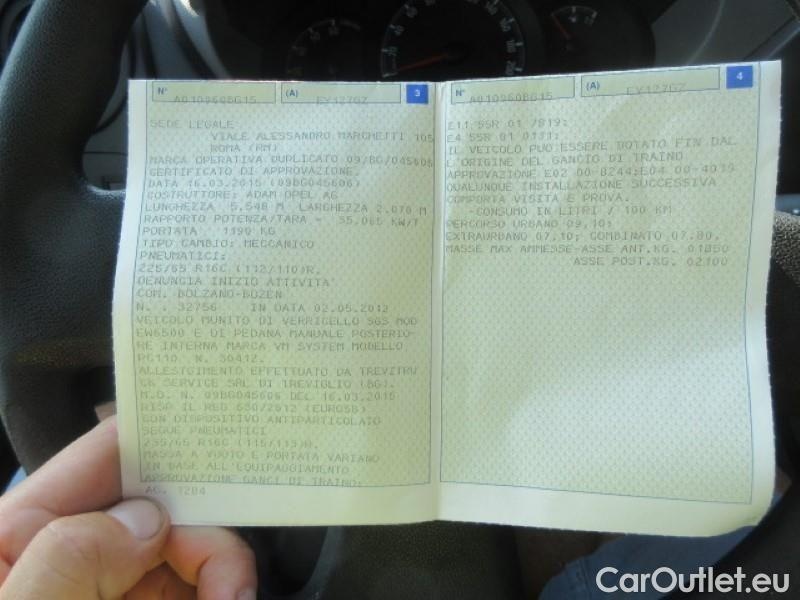 N°
A010960BG15
(A)
EY127GZ
3
SEDE LEGALE
VIALE ALESSANDRO MARCHETTI 105
ROMA (RM)
MARCA OPERATIVA DUPLICATO 09/BG/045606
CERTIFICATO DI APPROVAZIONE.
DATA 16.03.2015 (09BG045606)
COSTRUTTORE: ADAM OPEL AG
LUNGHEZZA 5.548 M LARGHEZZA 2.070 M
RAPPORTO POTENZA/TARA = 35,065 KW/T
PORTATA 1190 KG
TIPO CAMBIO: MECCANICO
PNEUMATICI:
225/65 R16C (112/110)R.
DENUNCIA INIZIO ATTIVITA'
COM. BOLZANO-BOZEN
N. : 32756 IN DATA 02.05.2012
VEICOLO MUNITO DI VERRICELLO SGS MOD
EW6500 E DI PEDANA MANUALE POSTERIO-
RE INTERNA MARCA VM SYSTEM MODELLO
PC110 N. 30412.
ALLESTIMENTO EFFETTUATO DA TREVITRU
CK SERVICE SRL DI TREVIGLIO (BG).
M.O. N. 09BG045606 DEL 16.03.2015
RISP IL REG 630/2012 (EURO5B)
CON DISPOSITIVO ANTIPARTICOLATO
SEGUE PNEUMATICI
235/65 R16C (115/113)R.
MASSA A VUOTO E PORTATA VARIANO
IN BASE ALL'EQUIPAGGIAMENTO
APPROVAZIONE GANCI DI TRAINO:
AG. 1284
N°
A010960BG15
(A)
EY127GZ
4
E11 55R 01 7819;
E4 55R 01 0131;
IL VEICOLO PUO'ESSERE DOTATO FIN DAL
L'ORIGINE DEL GANCIO DI TRAINO
APPROVAZIONE E02 00-8244;E04 00-4035
QUALUNQUE INSTALLAZIONE SUCCESSIVA
COMPORTA VISITA E PROVA.
-CONSUMO IN LITRI / 100 KM
PERCORSO URBANO 09,10;
EXTRAURBANO 07,10; COMBINATO 07.80.
MASSE MAX AMMESSE-ASSE ANT.KG. 01850
ASSE POST.KG. 02100
CarOutlet.eu